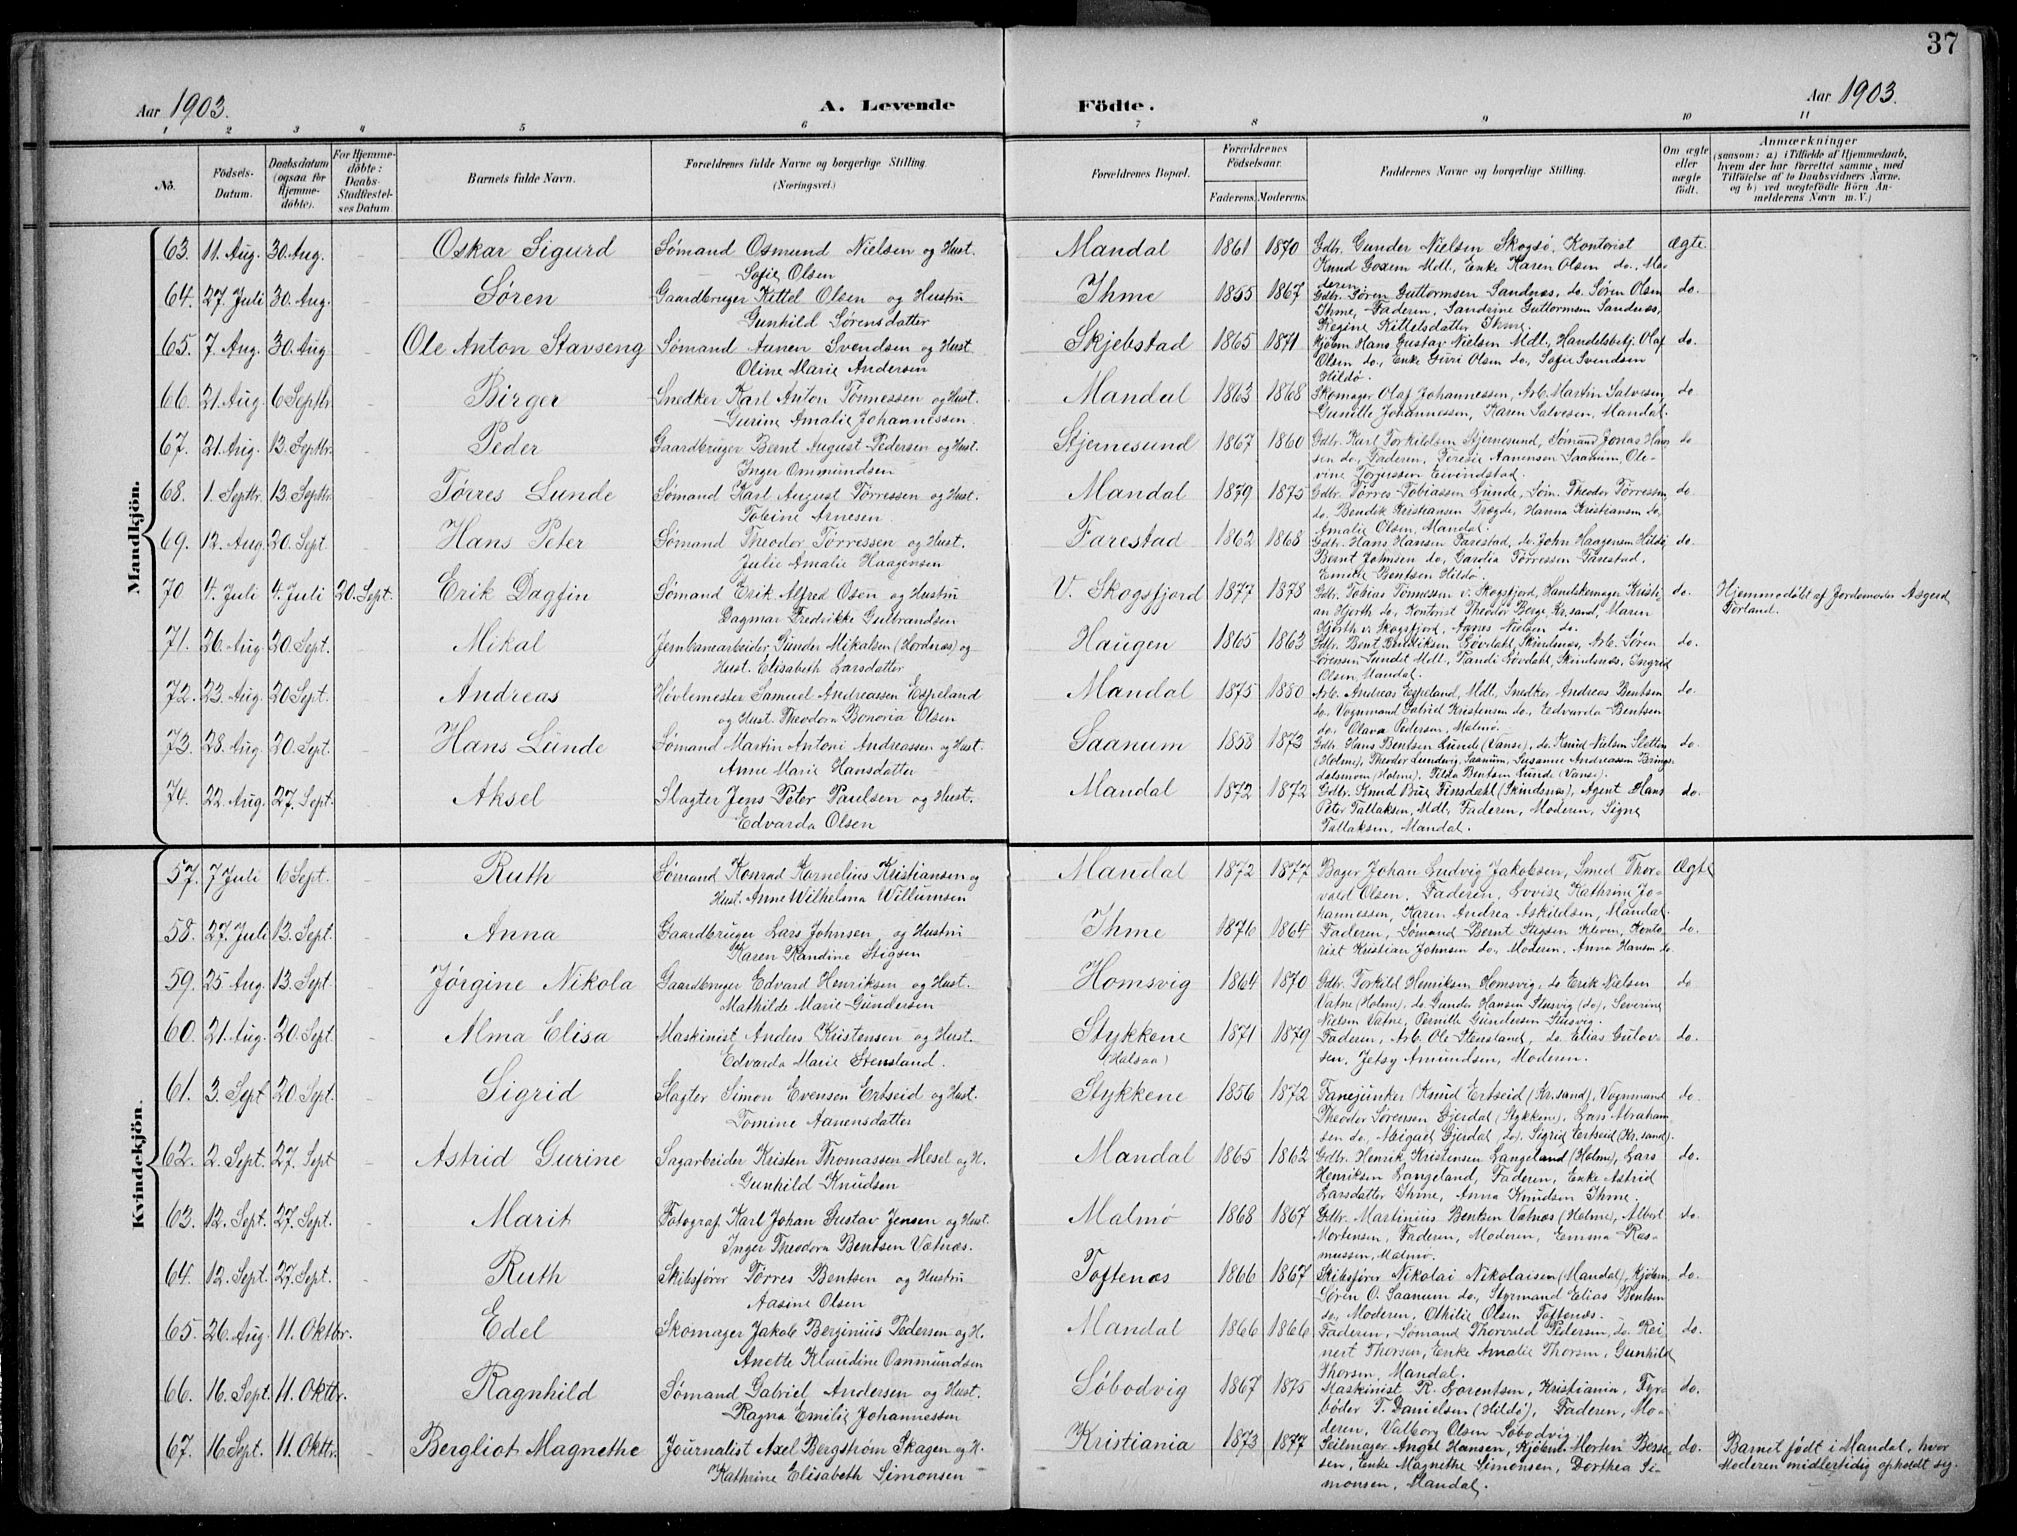 37
Aar 1903.
A. Levende
Födte.
Aar 1903.
1 2 3 4 5 6 7 8 9 10 11
No.
Födsels-
Datum.
Daabsdatum
(ogsaa for
Hjemme-
döbte).
For Hjemme-
döbte:
Daabs-
Stadfæstel-
ses Datum.
Barnets fulde Navn.
Forældrenes fulde Navne og borgerlige Stilling.
(Næringsvei.)
Forældrenes Bopæl.
Forældrenes
Födselsaar.
Faderens. Moderens.
Faddernes Navne og borgerlige Stilling.
Om ægte
eller
uægte
födt.
Anmærkninger
(saasom: a) i Tilfælde af Hjemmedaab,
hvem der har forrettet samme, med
Tilföielse af to Daabsvidners Navne.
og b) ved uægtefödte Börn An-
melderens Navn m.V.)
Mandkjön.
63. 11 Aug. 30 Aug. Oskar Sigurd Sømand Osmund Nielsen og Hust. Mandal 1861 1870 Gdbr. Gunder Nielsen Skogsø, Kontorist Ægte
Sofie Olsen Knud Goxem Mdl, Enke Karen Olsen do., Mo-
deren
64. 27 Juli 30 Aug. Søren Gaardbruger Kittel Olsen og Hustru Ihme 1855 1867 Gdbr. Søren Guttormsen Sandnæs, do. Søren Olsen do.
Gunhild Sørensdatter Ihme, Faderen, Sandrine Guttormsen Sandnæs,
Regine Kittelsdatter Ihme.
65. 7 Aug. 30 Aug Ole Anton Stavseng Sømand Aanen Svendsen og Hust Skjebstad 1865 1871 Kjøbm. Hans Gustav Nielsen Mdl, Handelsbetj. Olaf do.
Oline Marie Andersen Olsen do, Enke Guri Olsen do, Sofie Svendsen
Hildø.
66. 21 Aug. 6 Septbr. Birger Snedker Karl Anton Tønnessen og Hust. Mandal 1863 1868 Skomager Olaf Johannessen, Arb. Martin Salvesen do
Gurine Amalie Johannessen. Gunette Johannessen, Karen Salvesen, Mandal.
67. 21 Aug. 13 Septbr. Peder Gaardbruger Bernt August Pedersen og Hust. Stjernesund 1867 1860 Gdbr. Karl Torkildsen Stjernesund, Sømand Jonas Han- do
Inger Ommundsen sen do, Faderen, Terese Aanensen Saanum, Ole-
vine Torjussen Eivindstad.
68. 1. Septbr. 13 Septbr. Tørres Lunde Sømand Karl August Tørressen og Hust. Mandal 1879 1875 Gdbr. Tørres Tobiassen Lunde, Søm. Theodor Tørressen do.
Tobine Arnesen. do. Bendik Kristiansen Trægde, Hanna Kristiansen do.
Amalie Olsen, Mandal.
69. 12 Aug. 20 Sept. Hans Peter Sømand Theodor Tørressen og Hust. Farestad 1862 1868 Gdbr. Hans Hansen Farestad, do. John Haagensen Hildø do.
Julie Amalie Haagensen Bernt Johnsen do, Gardia Tørressen Farestad.
Emilie Bentsen Hildø.
70 4 Juli 4 Juli 20. Sept. Erik Dagfin Sømand Erik Alfred Osen og Hustru V. Skogsfjord 1877 1878 Gdbr. Tobias Tønnessen v. Skogsfjord, Handskemager Kristi- do. Hjemmedøbt af Jordemoder Asgerd
Dagmar Fredrikke Gulbrandsen an Hjorth do, Kontorist Theodor Berge, Kr.sand, Maren Dørland.
Hjorth v. Skogsfjord, Agnes Nielsen do.
71. 26 Aug. 20 Sept. Mikal Jernbanearbeider Gunder Mikalsen (Hordnæs) og Haugen 1865 1863 Gdbr. Bent Bendiksen Løvdahl, Skindsnæs, Arb. Søren do.
Hust. Elisabeth Larsdatter Sørensen Sundet Mdl, Randi Løvdahl, Skindsnæs, Ingrid
Olsen, Mandal.
72. 23 Aug. 20 Sept. Andreas Høvlemester Samuel Andreassen Espeland Mandal 1875 1880 Arb. Andreas Espeland, Mdl. Snedker Andreas Bentsen do.
og Hust. Theodora Bonoria Olsen do, Vognmand Gabriel Kristensen do, Edvarda Bentsen
do, Olava Pedersen, Malmø.
73. 28. Aug. 20 Sept. Hans Lunde Sømand Martin Antoni Andreassen og Hust. Saanum 1858 1873 Gdbr. Hans Bentsen Lunde (Vanse), do. Knud Nielsen Sletten do.
Anne Marie Hansdatter (Holme), Theodor Lundevig, Saanum, Susanne Andreassen Brings-
dalsmoen (Holme), Tilda Bentsen Lunde (Vanse).
74. 22 Aug. 27. Sept. Aksel Slagter Jens Peter Paulsen og Hust. Mandal 1872 1872 Gdbr. Knud Bue Finsdahl (Skindsnæs), Agent Hans do.
Edvarda Olsen Peter Tallaksen, Mdl, Faderen, Moderen, Signe
Tallaksen, Mandal.
Kvindekjön.
57. 7 Juli 6 Sept. Ruth Sømand Konrad Kornelius Kristiansen og Mandal 1872 1877 Bager Johan Ludvig Jakobsen, Smed Thor- Ægte
Hust. Anne Wilhelma Willumsen vald Olsen, Faderen, Lovise Kathrine Jo-
hannessen, Karen Andrea Askildsen, Mandal.
58. 27 Juli 13 Sept. Anna Gaardbruger Lars Johnsen og Hustru Ihme 1876 1864 Faderen, Sømand Bernt Stigsen Kleven, Konto- do.
Karen Randine Stigsen rist Kristian Johnsen do, Moderen, Anna Hansen do.
59. 25 Aug. 13 Sept. Jørgine Nikola Gaardbruger Edvard Henriksen og Hust. Homsvig 1864 1870 Gdbr. Torkild Henriksen Homsvig, do Erik Nielsen do
Mathilde Marie Gundersen Vatne (Holme), do Gunder Hansen Stusvig (do), Severine
Nielsen Vatne, Pernille Gundersen Stusvig.
60. 21 Aug. 20 Sept. Alma Elisa Maskinist Anders Kristensen og Hust. Stykkene 1871 1879 Faderen, Arb. Ole Stensland, do. Elias Gulov- do.
Edvarda Marie Stensland. (Halsaa) sen, Jetsy Amundsen, Moderen.
61. 3. Sept 20 Sept. Sigrid Slagter Simon Evensen Ertseid og Hust. Stykkene 1856 1872 Fanejunker Knud Ertseid (Kr.sand), Vognmand do.
Tomine Aanensdatter Theodor Sørensen Gjerdal (Stykkene), Lars Abraham-
sen do, Abigael Gjerdal do, Sigrid Ertseid (Kr.sand).
62. 2. Sept. 27. Sept Astrid Gurine Sagarbeider Kristen Thomassen Mesel og H. Mandal 1865 1862 Gdbr. Henrik Kristensen Langeland (Holme), Lars do.
Gunhild Knudsen Henriksen Langeland, Faderen, Enke Astrid
Larsdatter Ihme, Anna Knudsen Ihme.
63. 12. Sept. 27. Sept. Marit Fotograf Karl Johan Gustav Jensen og Hust. Malmø 1868 1867 Gdbr. Martinius Bentsen Vatnæs (Holme), Albert do.
Inger Theodora Bentsen Vatnæs. Mortensen, Faderen, Moderen, Emma Ras-
mussen, Malmø.
64. 12. Sept. 27. Sept. Ruth Skibsfører Tørres Bentsen og Hustru Toftenæs 1866 1867 Skibsfører Nikolai Nikolaisen (Mandal), Kjøbm. do.
Aasine Olsen Søren O. Saanum do, Styrmand Elias Bentsen
do, Moderen, Othilie Olsen Toftenæs.
65. 26. Aug. 11. Oktbr. Edel Skomager Jakob Berginius Pedersen og H. Mandal 1866 1866 Faderen, Sømand Thorvald Pedersen, do. Rei- do.
Anette Klaudine Osmundsen nert Thorsen, Enke Amalie Thorsen, Gunhild
Thorsen, Mandal.
66. 16. Sept. 11. Oktbr. Ragnhild Sømand Gabriel Andersen og Hust. Søbodvig 1867 1875 Maskinist R. Lorentsen, Kristiania, Fyr- do.
Ragna Emilie Johannessen bøder T. Danielsen (Hildø), Faderen, Mo-
deren, Valborg Olsen Søbodvig.
67. 16 Sept. 11. Oktbr. Bergliot Magnethe Journalist Axel Bergstrøm Skagen og H. Kristiania 1873 1877 Seilmager Angel Hansen, Kjøbm. Morten Besse- do. Barnet født i Mandal, hvor
Kathrine Elisabeth Simonsen sen, Enke Magnethe Simonsen, Dorthea Si- Moderen midlertidig opholdt sig.
monsen, Mandal.